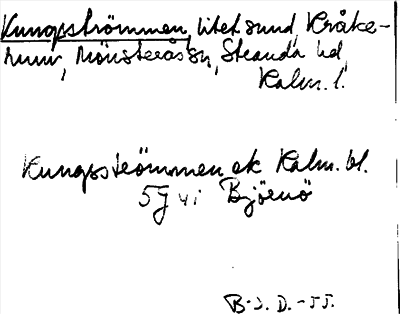 Kungsströmmen, litet sund, Kråke-
rum, Mönsterås sn, Stranda hd,
Kalm. l.
Kungsströmmen ek Kalm. bl.
5J vi Björnö
B-J. D. -55.